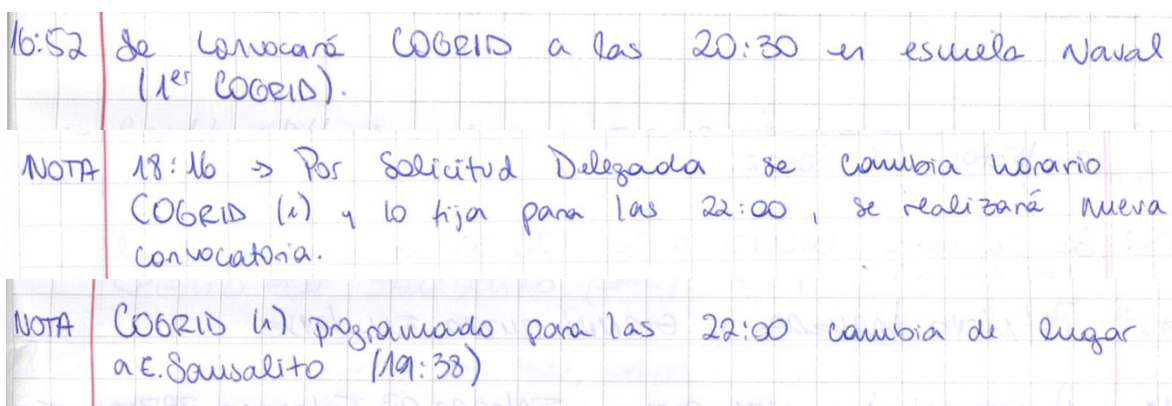 16:52 Se convocará COGRID a las 20:30 en escuela Naval
(1er COGRID).
NOTA 18:16 → Por Solicitud Delegada se cambia horario
COGRID (1) y lo fija para las 22:00, se realizará nueva
convocatoria.
NOTA COGRID (1) programado para las 22:00 cambia de lugar
a E. Sausalito (19:38)